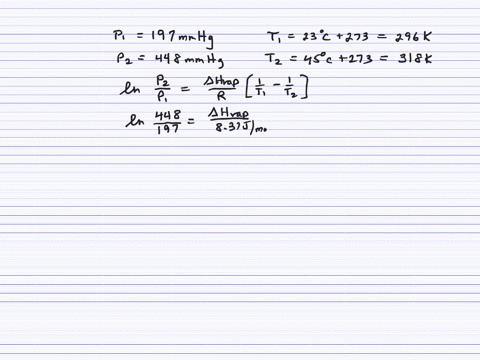 P1 = 197 mmHg T1 = 23°C + 273 = 296 K
P2 = 448 mmHg T2 = 45°C + 273 = 318 K
ln P2/P1 = ΔHvap/R [1/T1 - 1/T2]
ln 448/197 = ΔHvap/8.31J/mo